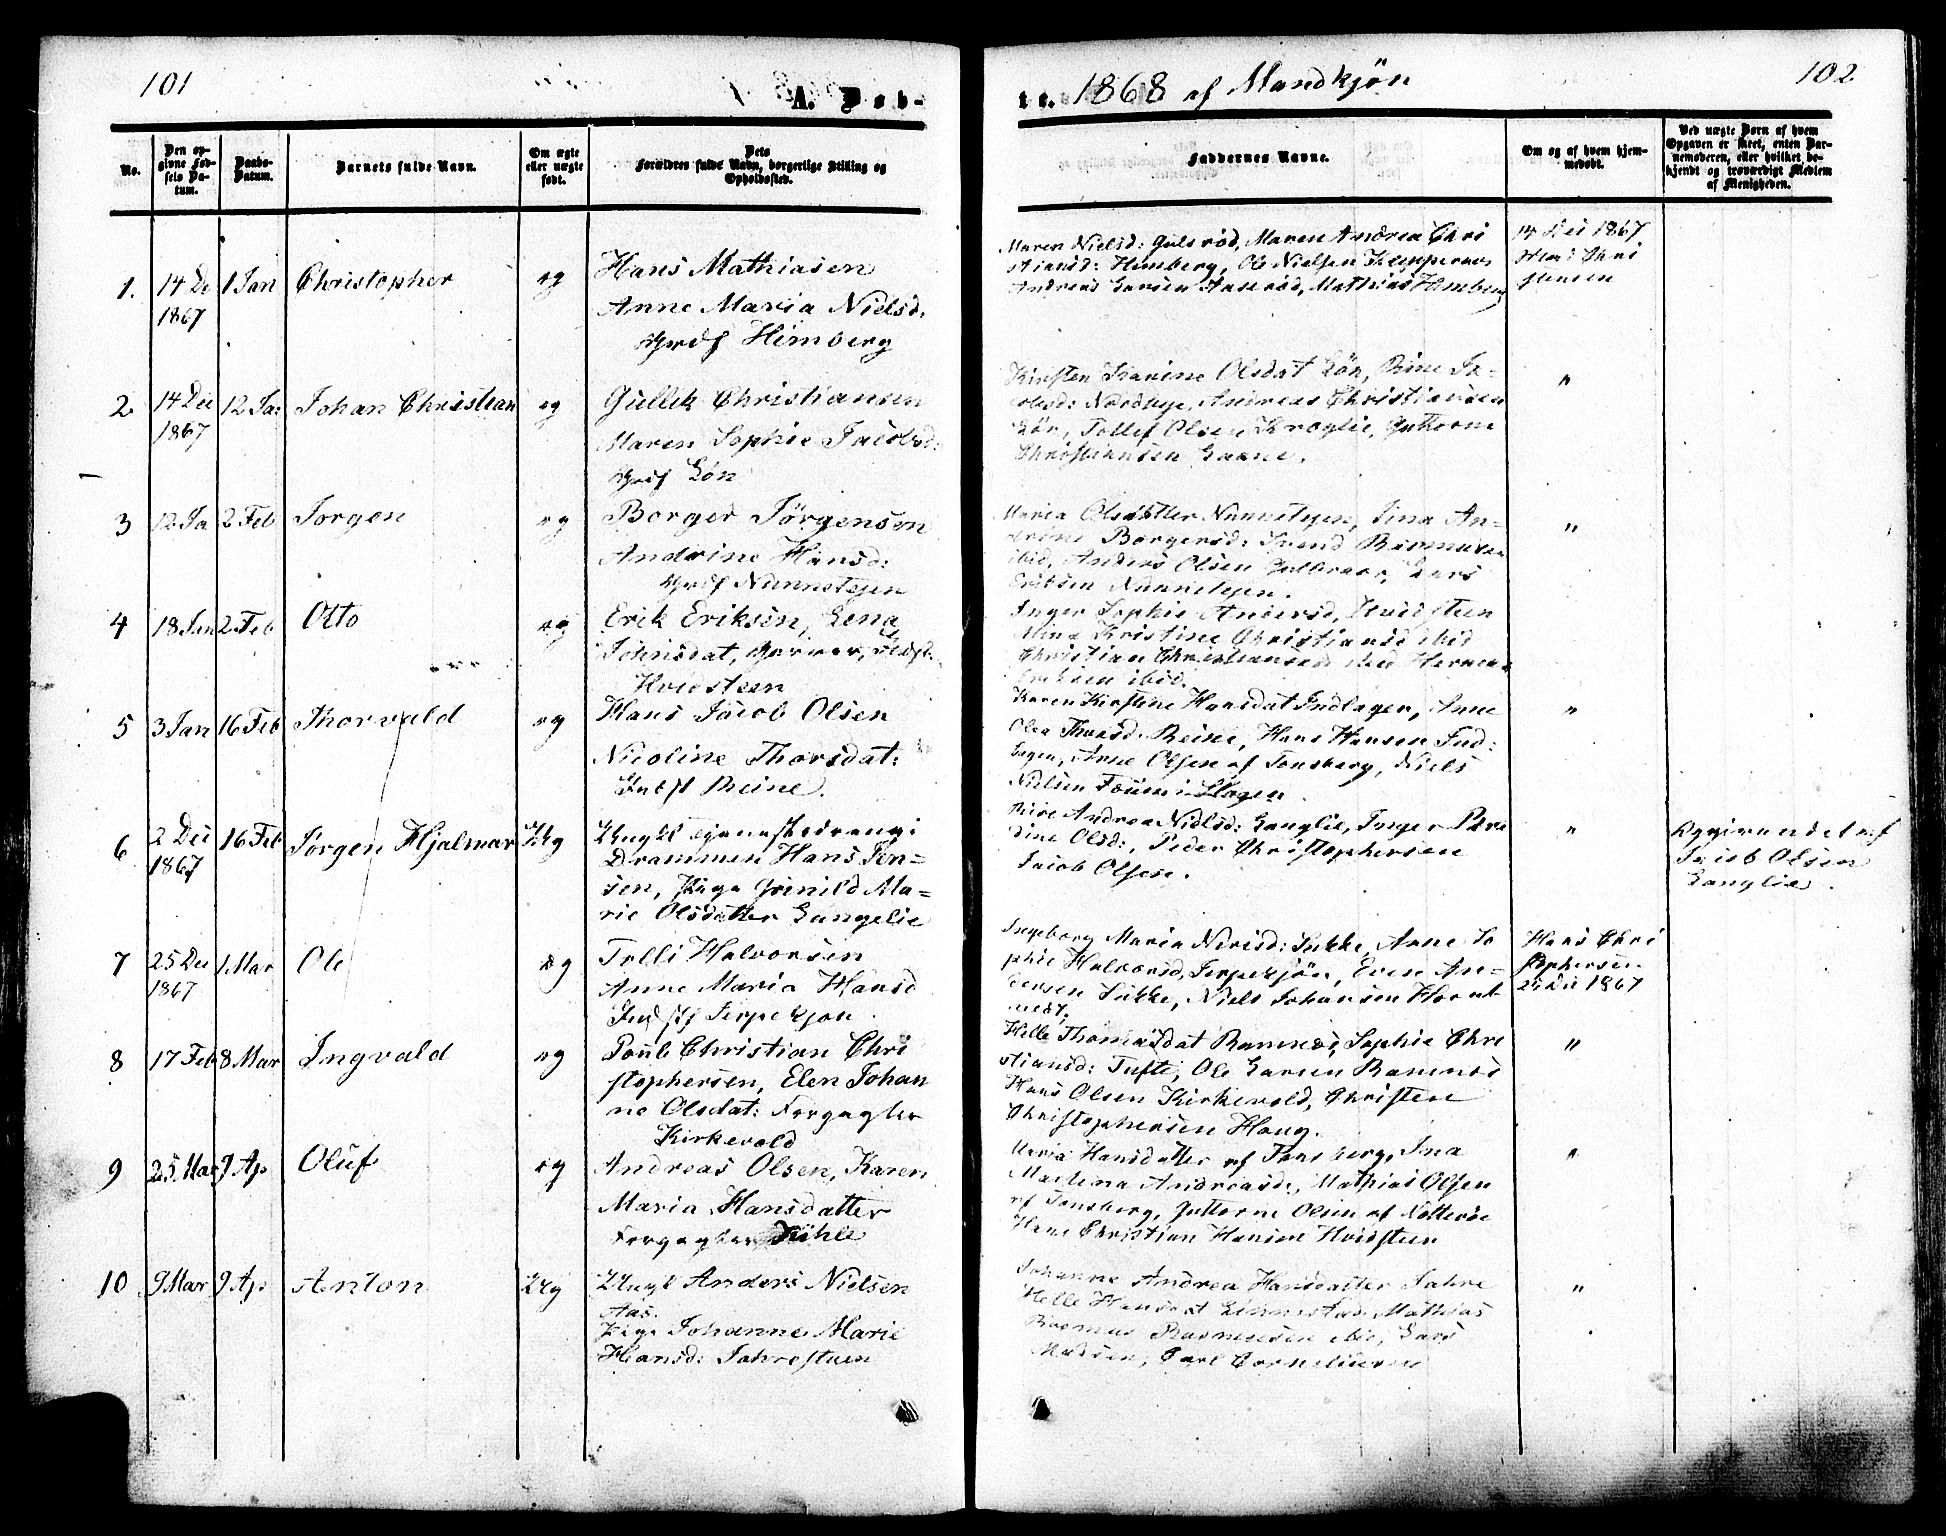 101
A. Døb-
te. 1868 af Mandkjön
102
No.
Den op-
givne Fød-
sels Da-
tum.
Daabs-
Datum.
Barnets fulde Navn.
Om ægte
eller uægte
født.
Dets
Forældres fulde Navn, borgerlige Stilling og
Opholdssted.
Faddernes Navne.
Om og af hvem hjem-
medøbt.
Ved uægte Børn af hvem
Opgaven er skeet, enten Bar-
nemoderen, eller hvilket be-
kjendt og troværdigt Medlem
af Menigheden.
1. 14 De 1 Jan Christopher eg Hans Mathiasen
1867
Anne Maria Nielsd:
Himberg
Maren Nielsd: Gulsrød, Maren Andrea Chri
stiansd: Himberg, Ole Nielsen
Andreas Larsen Aaserød, Mathias Himberg
14 Dei 1867
Chri
stensen
2 14 Dei 12 Ja: Johan Christian eg Gullik Christiansen
1867
Maren Sophie Jacobsd:
Løn
Kirsten Karine Olsdat Løn, Rine Ja-
cobsd: Andreas Christiansen
Løn, Tollef Olsen Guttorm
Christiansen
"
3 12 Ja 2 Feb Jorgen eg Borger Jörgensen
Andrine Hansd:
Nunnetejen
Maria Olsdatter Nunnetejen, Tina An-
drine Borgersd: Svend Rasmussen
ibid, Anders Olsen Lars
Eriksen Nunnetejen.
"
4 18 Jan 2 Feb Otto eg Erik Eriksen, Lena
Johnsdat,
Hvidsteen
Inger Sophie Andersd, Hvidsteen
Alma Kristine Christiansd ibid
Christian Christiansen ibid Herman
Eriksen ibid.
5 3 Jan 16 Feb Thorvald eg Hans Jacob Olsen
Nicoline Thorsdat:
Indst Reine.
Karen Kirstine Hansdat Indlagen, Anne
Olea Thorsd: Reine, Hans Hansen Ind-
lagen, Arne Olsen af Tonsberg, Niels
Nielsen
"
6 2 Dei 16 Feb Jørgen Hjalmar Ueg Ungkl
1867
Drammen Hans Jen-
sen, Pige Gunild Ma-
rie Olsdatter Langelie
Rine Andrea Nielsd: Langlie, Inger Kare
dine Olsd:, Peder Christophersen
Jacob Olsen.
"
Opgivendet af
Jacob Olsen
Langlie.
7 25 Dei 1 Mar Ole eg Tolli Halvorsen
1867
Anne Maria Hansd
Indst Jerpekjon.
Ingeborg Maria Nerisd: Sukke, Anne So
phie Halvorsd, Jerpekjön, Even An-
dersen Sukke, Niels Johansen
Hans Chri
stophersen
25 Dei 1867
8 17 Feb 8 Mar Ingvald eg Poul Christian Chri
stophersen, Elen Johan
ne Olsdat: Forpagter
Kirkevold
Helle Thomasdat Ramnes, Sophie Chri
stiansd: Tufte, Ole Larsen Ramnes
Hans Olsen Kirkevold, Christen
Christophersen Haug.
"
9 25 Mar 9 Ap Oluf eg Andreas Olsen, Karen
Maria Hansdatter
Forpagter
Maria Hansdatter af Tonsberg, Ina
Martina Andreasd:, Mathias Olsen
af Tonsberg, Guttorm Olsen af Nötteröe
Hans Christian Hansen Hvidsteen
"
10 9 Mar 9 Ap Anton Ueg Ungk Anders Nielsen
Aas.
Pige Johanne Marie
Hansd: Jahresteen
Johanne Andrea Hansdatter Jahre
Helle Hansdat Mathias
Rasmus Rasmussen ibid, Lars
Madsen, Carl Cornelius
"